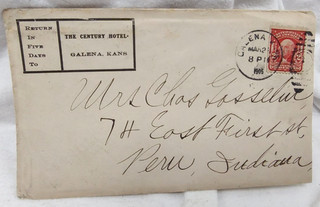 RETURN
IN
FIVE
DAYS
TO
THE CENTURY HOTEL
GALENA, KANS
GALENA
MAR 2
8 P
Mrs Chas Gosselin
74 East First St,
Peru, Indiana